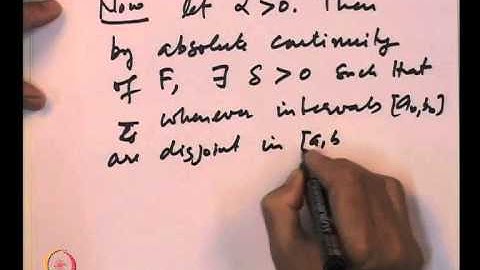 Now let α > 0. Then
by absolute continuity
of F, ∃ δ > 0 such that
whenever intervals [an, bn]
are disjoint in [a, b